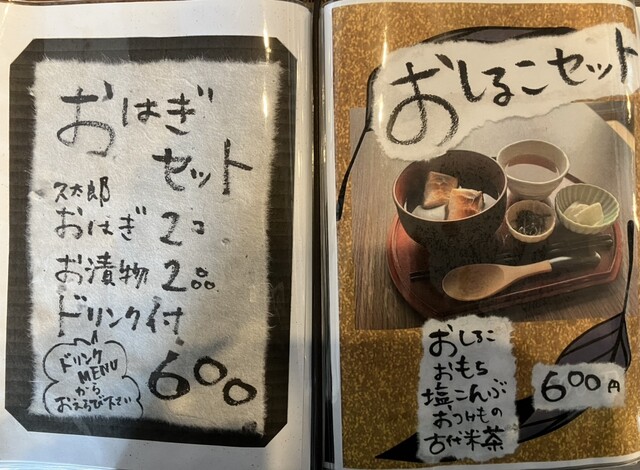 おはぎ
セット
久太郎
おはぎ 2コ
お漬物 2品
ドリンク付
ドリンク
MENU
から
おえらび下さい
600
おしるこセット
おしるこ
おもち
塩こんぶ
おつけもの
古代米茶
600円